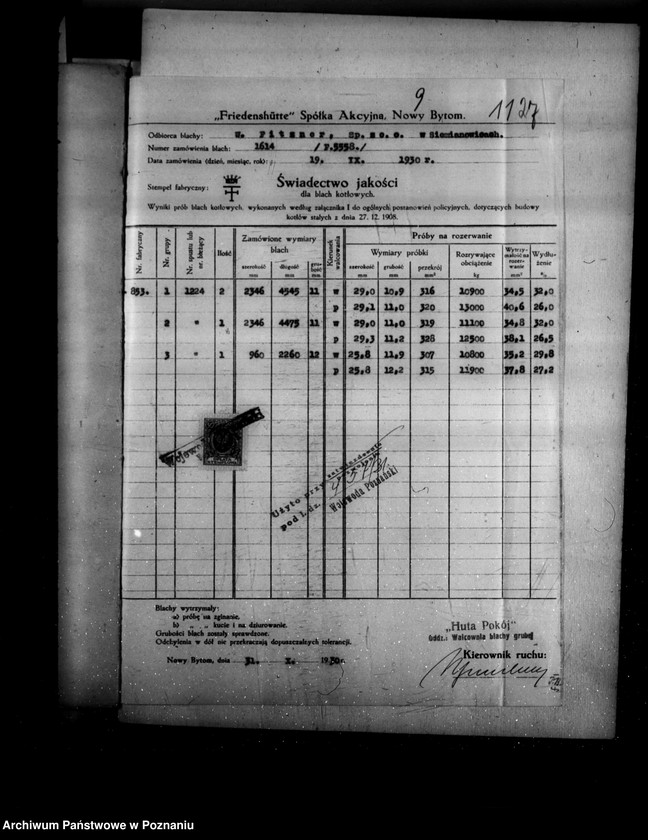 9
1127
„Friedenshütte” Spółka Akcyjna, Nowy Bytom.
Odbiorca blachy: W. Fitzner, Sp. z o. o. w Siemianowicach.
Numer zamówienia blach: 1614 /F.5558./
Data zamówienia (dzień, miesiąc, rok): 19. IX. 1930 r.
Stempel fabryczny:
Świadectwo jakości
dla blach kotłowych.
Wyniki prób blach kotłowych, wykonanych według załącznika I do ogólnych postanowień policyjnych, dotyczących budowy
kotłów stałych z dnia 27. 12. 1908.
Nr. fabryczny Nr. grupy Nr. spustu lub nr. bieżący Ilość Zamówione wymiary blach Kierunek walcowania Próby na rozerwanie
Wymiary próbki Rozrywające obciążenie kg Wytrzymałość na rozerwanie mm² Wydłużenie %
szerokość mm długość mm grubość mm szerokość mm grubość mm przekrój mm²
853. 1 1224 2 2346 4545 11 w 29,0 10,9 316 10900 34,5 32,0
p 29,1 11,0 320 13000 40,6 26,0
2 " 1 2346 4475 11 w 29,0 11,0 319 11100 34,8 32,0
p 29,3 11,2 328 12500 38,1 26,5
3 " 1 960 2260 12 w 25,8 11,9 307 10800 35,2 29,8
p 25,8 12,2 315 11900 37,8 27,2
Użyto przy
pod l. dz.
Wojewoda Poznański
Blachy wytrzymały:
a) próbę na zginanie.
b) „ „ kucie i na dziurowanie.
Grubości blach zostały sprawdzone.
Odchylenia w dół nie przekraczają dopuszczalnych tolerancji.
Nowy Bytom, dnia 31. X. 1930 r.
„Huta Pokój”
Oddz.: Walcownia blachy grubej
Kierownik ruchu:
Archiwum Państwowe w Poznaniu